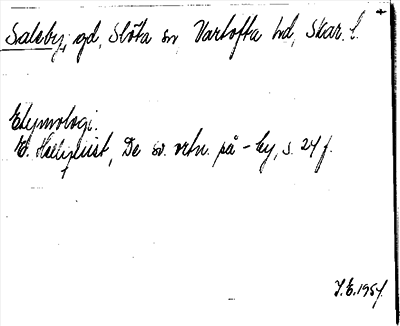 Saleby, gd, Slöta sn Vartofta hd, Skar. l. +
Etymologi.
E. Hellquist, De sv. ortn. på -by, s. 24 f.
J.E. 1954.